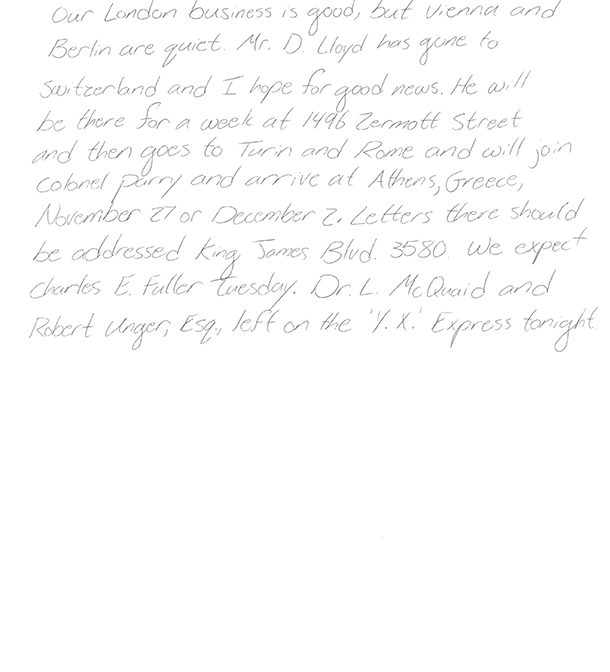 Our London business is good, but Vienna and
Berlin are quiet. Mr. D. Lloyd has gone to
Switzerland and I hope for good news. He will
be there for a week at 1496 Zermott Street
and then goes to Turin and Rome and will join
Colonel Parry and arrive at Athens, Greece,
November 27 or December 2. Letters there should
be addressed King James Blvd. 3580. We expect
Charles E. Fuller Tuesday. Dr. L. McQuaid and
Robert Unger, Esq., left on the 'Y.X.' Express tonight.